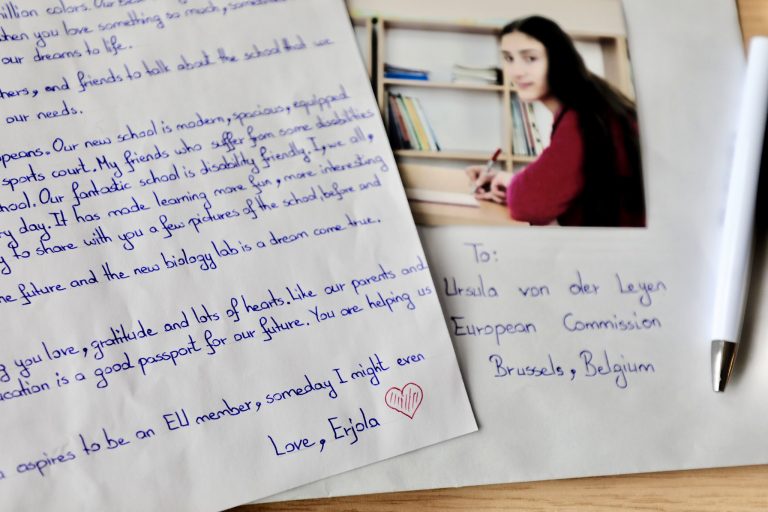 million colors. Our
when you love something so much, sometimes
our dreams to life.
hers, and friends to talk about the school that we
our needs.
peans. Our new school is modern, spacious, equipped
sports court. My friends who suffer from some disabilities
hool. Our fantastic school is disability friendly. I, we all,
ry day. It has made learning more fun, more interesting
y to share with you a few pictures of the school before and
he future and the new biology lab is a dream come true.
g you love, gratitude and lots of hearts. Like our parents and
ucation is a good passport for our future. You are helping us
a aspires to be an EU member, someday I might even
Love, Erjola
To:
Ursula von der Leyen
European Commission
Brussels, Belgium